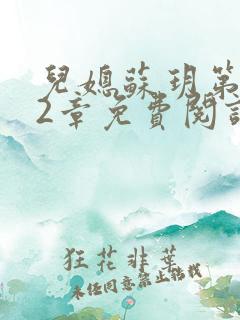 兒媳蘇玥第
2章免費閱讀
狂花非葉
未經同意禁止轉載